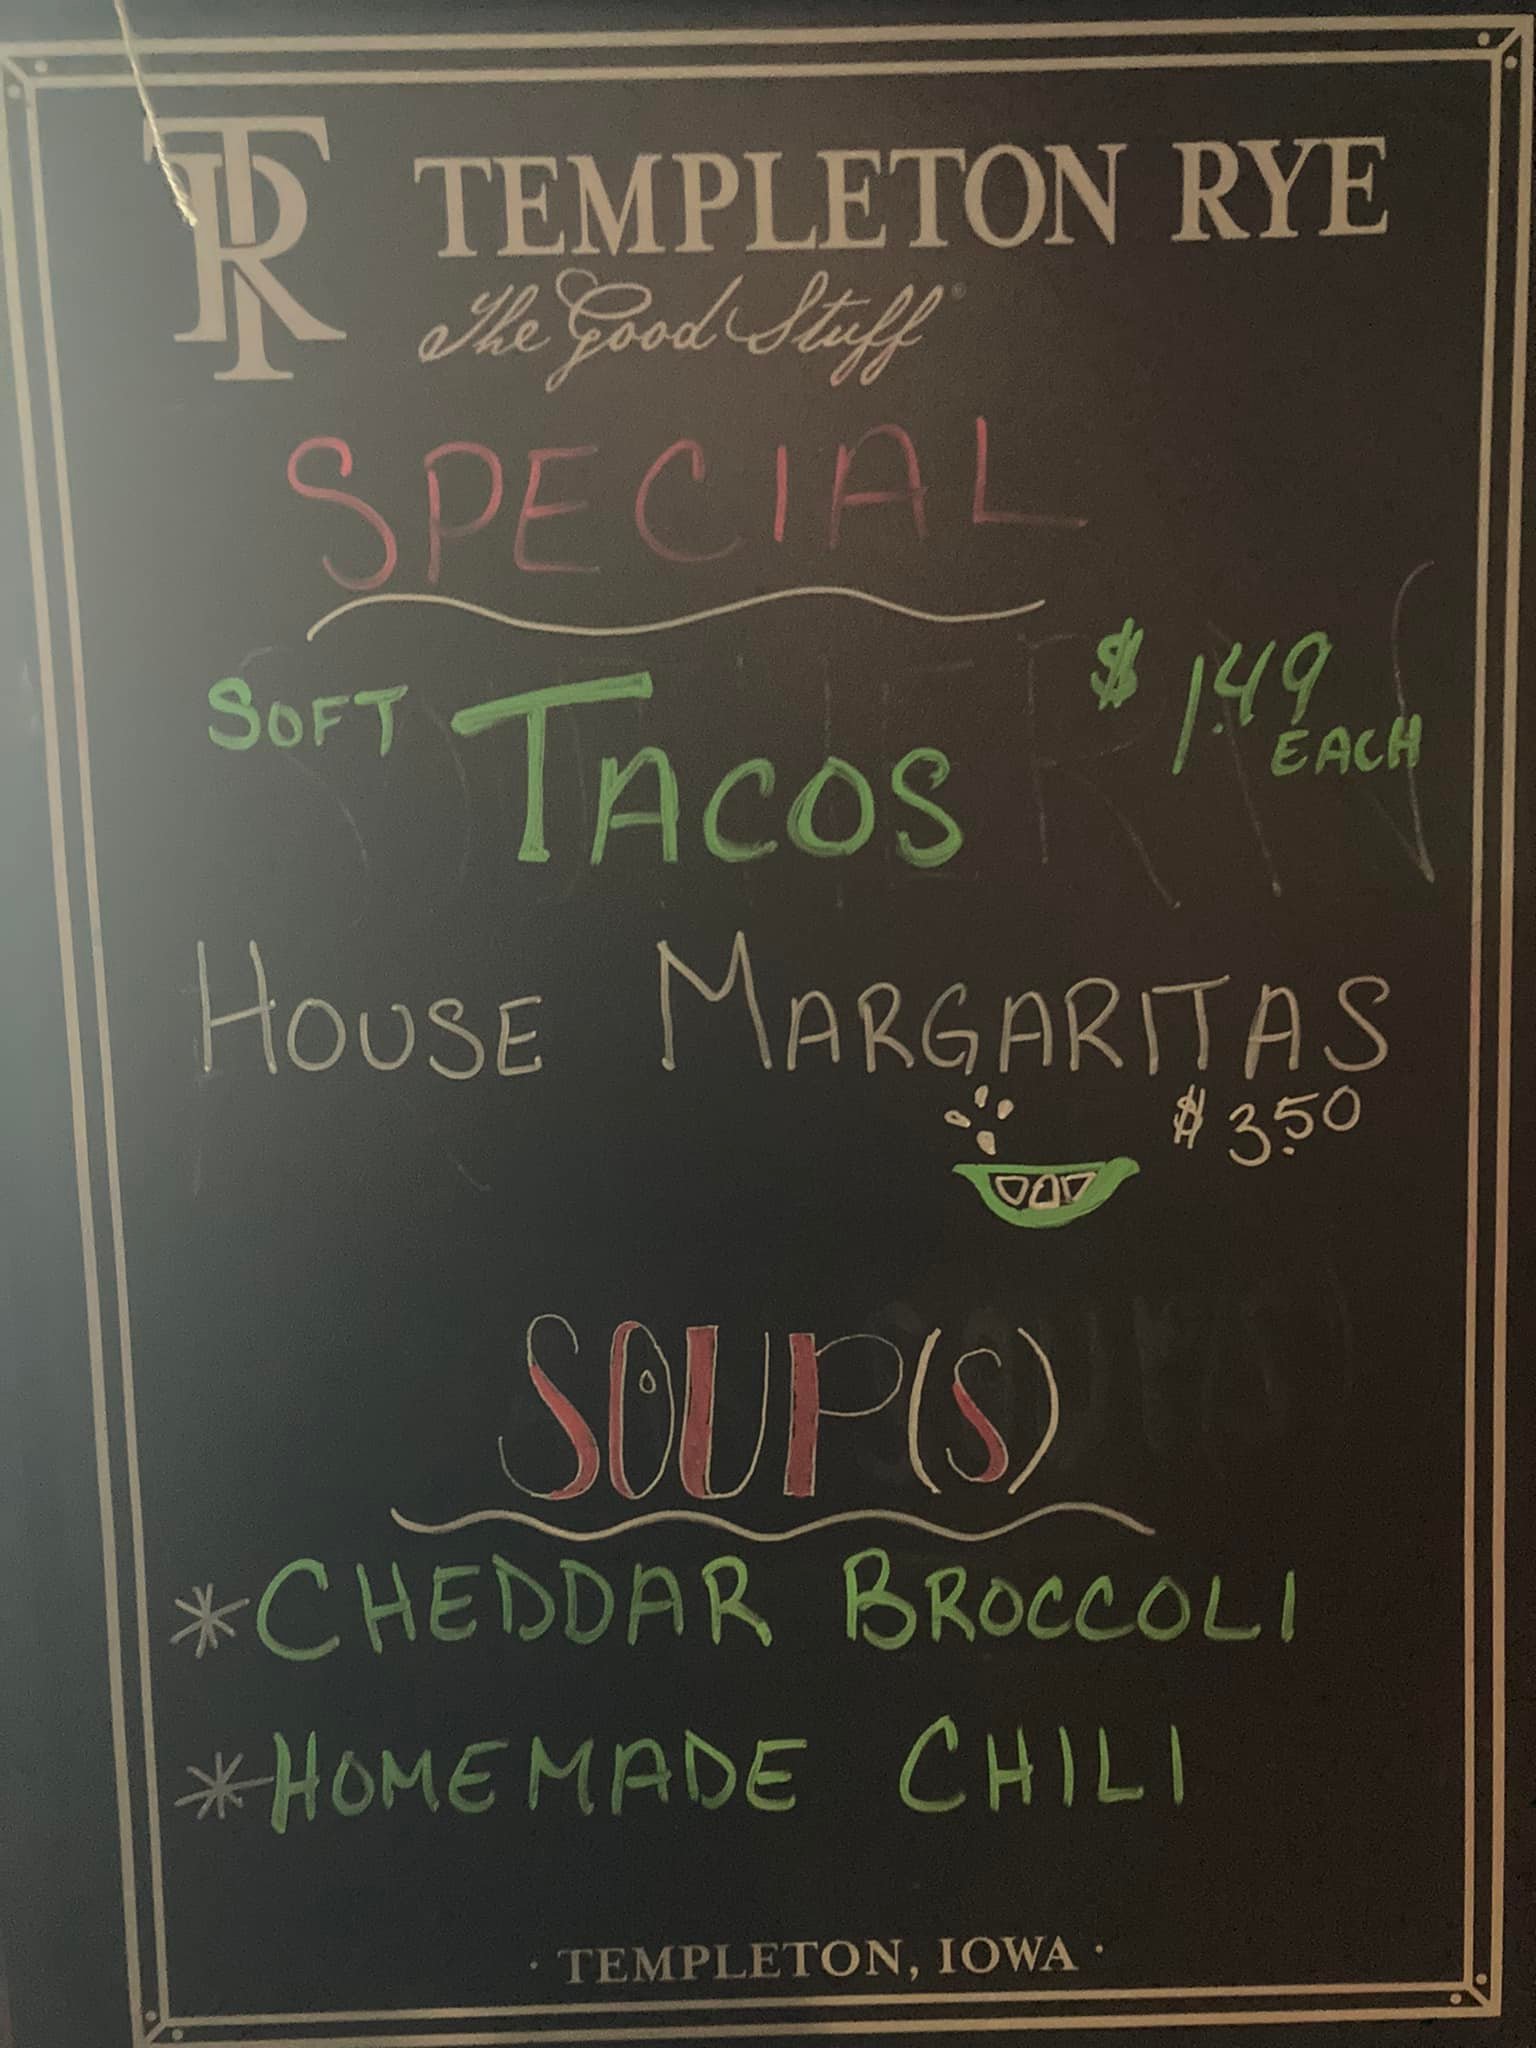 TR TEMPLETON RYE
The Good Stuff®
SPECIAL
SOFT TACOS $1.49
EACH
HOUSE MARGARITAS
$3.50
SOUP(S)
*CHEDDAR BROCCOLI
*HOMEMADE CHILI
· TEMPLETON, IOWA ·